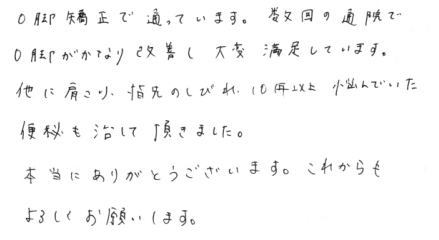 O脚矯正で通っています。数回の通院で
O脚がかなり改善し大変満足しています。
他に肩こり、指先のしびれ、10年以上悩んでいた
便秘も治して頂きました。
本当にありがとうございます。これからも
よろしくお願いします。